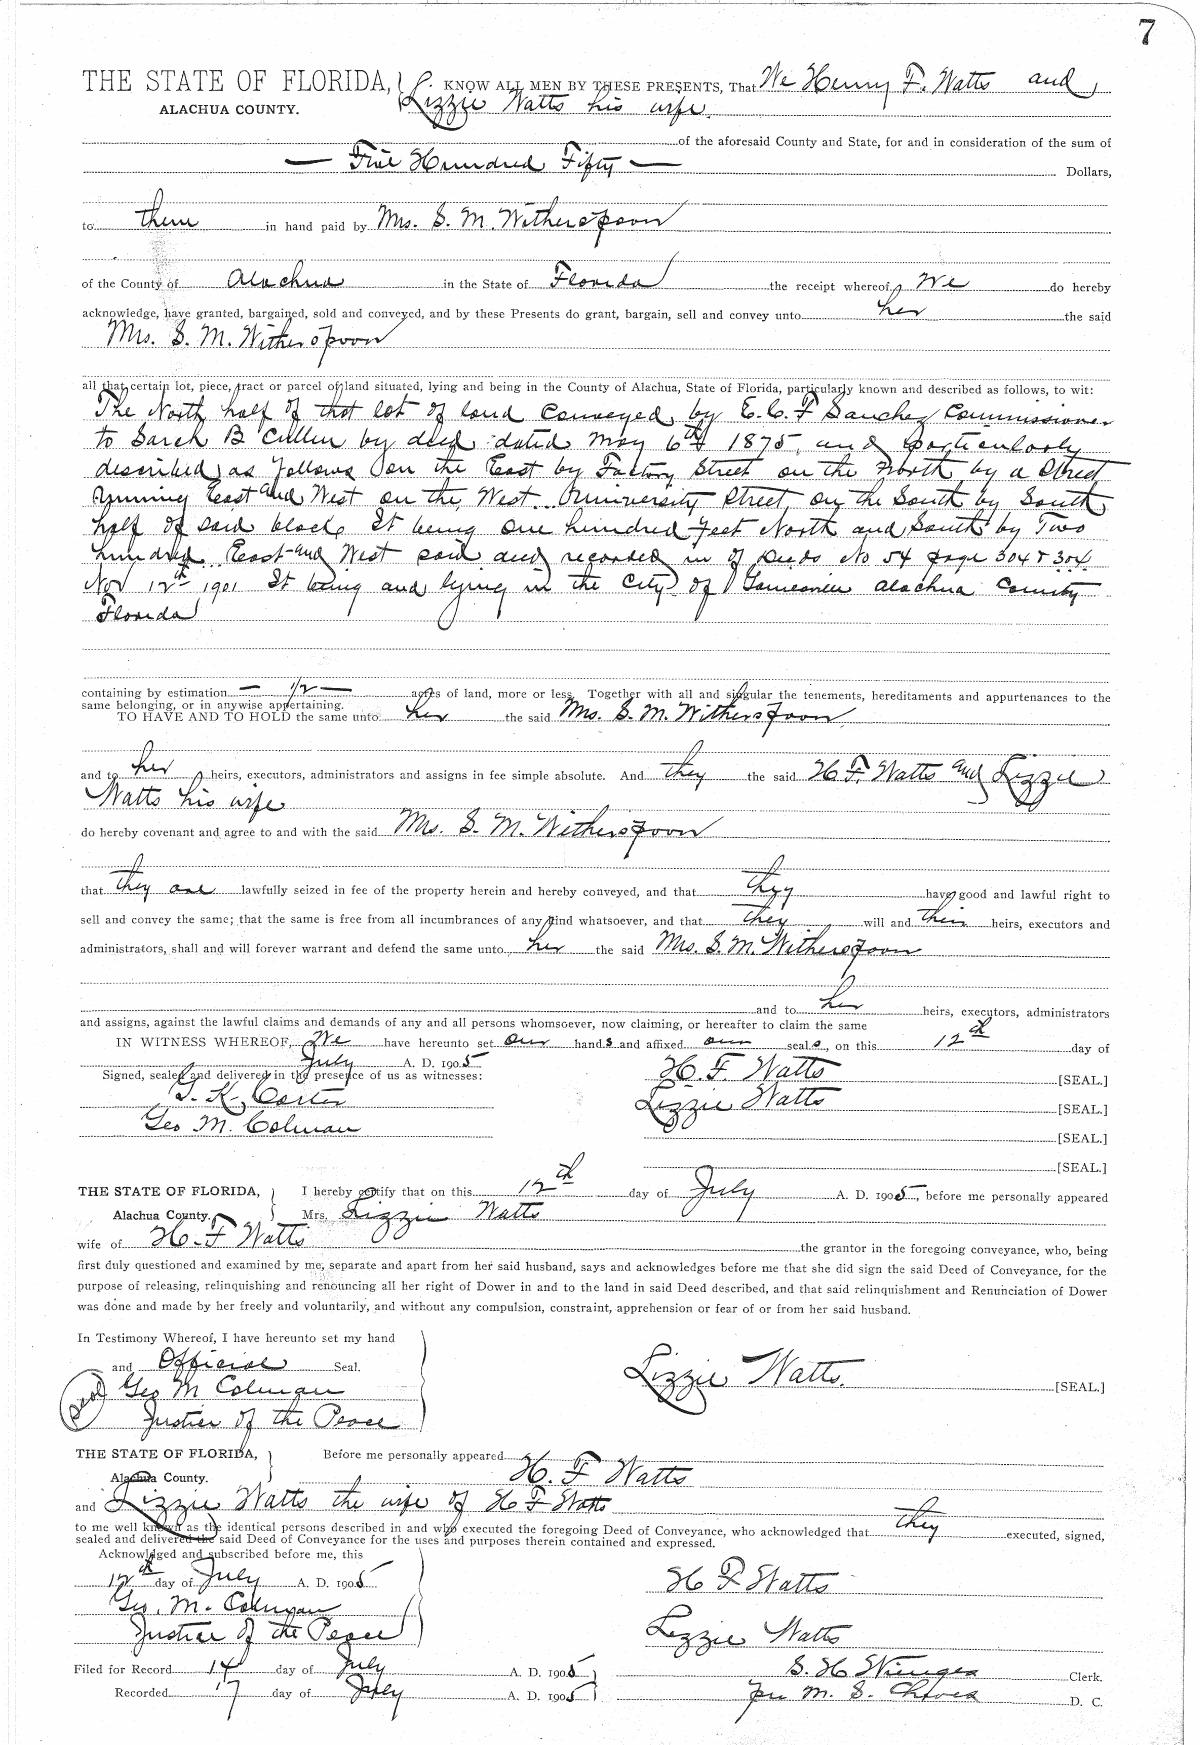 7
THE STATE OF FLORIDA, KNOW ALL MEN BY THESE PRESENTS, That We Henry F. Watts and
ALACHUA COUNTY. Lizzie Watts his wife.
of the aforesaid County and State, for and in consideration of the sum of
— Five Hundred Fifty — Dollars,
to them in hand paid by Mrs. S. M. Witherspoon
of the County of Alachua in the State of Florida the receipt whereof We do hereby
acknowledge, have granted, bargained, sold and conveyed, and by these Presents do grant, bargain, sell and convey unto her the said
Mrs. S. M. Witherspoon
all that certain lot, piece, tract or parcel of land situated, lying and being in the County of Alachua, State of Florida, particularly known and described as follows, to wit:
The North half of that lot of land conveyed by E. C. F Sanchez Commissioner
to Sarah B Cullen by deed dated May 6th 1875, and particularly
described as follows on the East by Factory Street on the North by a Street
running East and West on the West University Street, on the South by South
half of said block It being one hundred feet North and South by Two
hundred East and West said and recorded in of Deeds No 54 page 304 & 304
Nov 12th 1901 It being and lying in the City of Gainesville Alachua County
Florida
containing by estimation — 1/2 — acres of land, more or less. Together with all and singular the tenements, hereditaments and appurtenances to the
same belonging, or in anywise appertaining.
TO HAVE AND TO HOLD the same unto her the said Mrs. S. M. Witherspoon
and to her heirs, executors, administrators and assigns in fee simple absolute. And they the said H F. Watts and Lizzie
Watts his wife
do hereby covenant and agree to and with the said Mrs. S. M. Witherspoon
that they are lawfully seized in fee of the property herein and hereby conveyed, and that they have good and lawful right to
sell and convey the same; that the same is free from all incumbrances of any kind whatsoever, and that they will and their heirs, executors and
administrators, shall and will forever warrant and defend the same unto her the said Mrs. S. M. Witherspoon
and to her heirs, executors, administrators
and assigns, against the lawful claims and demands of any and all persons whomsoever, now claiming, or hereafter to claim the same
IN WITNESS WHEREOF, We have hereunto set our hands and affixed our seals, on this 12th day of
July A. D. 1905
Signed, sealed and delivered in the presence of us as witnesses: H. F. Watts [SEAL.]
G. K. Carter Lizzie Watts [SEAL.]
Geo M. Colman [SEAL.]
[SEAL.]
THE STATE OF FLORIDA, I hereby certify that on this 12th day of July A. D. 1905, before me personally appeared
Alachua County. Mrs. Lizzie Watts
wife of H. F Watts the grantor in the foregoing conveyance, who, being
first duly questioned and examined by me, separate and apart from her said husband, says and acknowledges before me that she did sign the said Deed of Conveyance, for the
purpose of releasing, relinquishing and renouncing all her right of Dower in and to the land in said Deed described, and that said relinquishment and Renunciation of Dower
was done and made by her freely and voluntarily, and without any compulsion, constraint, apprehension or fear of or from her said husband.
In Testimony Whereof, I have hereunto set my hand
and Official Seal. Lizzie Watts. [SEAL.]
Seal Geo M Colman
Justice of the Peace
THE STATE OF FLORIDA, Before me personally appeared
Alachua County. H. F Watts
and Lizzie Watts the wife of H F Watts
to me well known as the identical persons described in and who executed the foregoing Deed of Conveyance, who acknowledged that they executed, signed,
sealed and delivered the said Deed of Conveyance for the uses and purposes therein contained and expressed.
Acknowledged and subscribed before me, this
12th day of July A. D. 1905 H F Watts
Geo. M. Colman
Justice of the Peace Lizzie Watts
Filed for Record 14 day of July A. D. 1905 S. H Wienges Clerk.
Recorded 17 day of July A. D. 1905 per M. S. Cheves D. C.